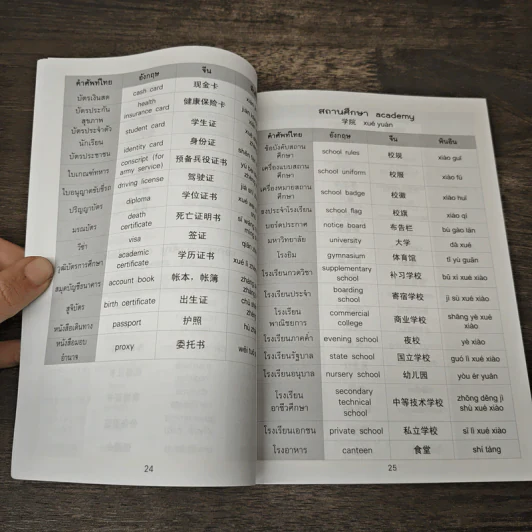 คำศัพท์ไทย อังกฤษ จีน
บัตรเงินสด cash card 现金卡
บัตรประกันสุขภาพ health insurance card 健康保险卡
บัตรประจำตัวนักเรียน student card 学生证
บัตรประชาชน identity card 身份证
ใบเกณฑ์ทหาร conscript (for army service) 预备兵役证书
ใบอนุญาตขับขี่รถ driving license 驾驶证
ปริญญาบัตร diploma 学位证书
มรณบัตร death certificate 死亡证明书
วีซ่า visa 签证
วุฒิบัตรการศึกษา academic certificate 学历证书
สมุดบัญชีธนาคาร account book 帐本，帐簿
สูติบัตร birth certificate 出生证
หนังสือเดินทาง passport 护照
หนังสือมอบอำนาจ proxy 委托书
24
สถานศึกษา academy
学院 xué yuàn
คำศัพท์ไทย อังกฤษ จีน พินอิน
ข้อบังคับสถานศึกษา school rules 校规 xiào guī
เครื่องแบบสถานศึกษา school uniform 校服 xiào fú
เครื่องหมายสถานศึกษา school badge 校徽 xiào huī
ธงประจำโรงเรียน school flag 校旗 xiào qí
บอร์ดประกาศ notice board 布告栏 bù gào lán
มหาวิทยาลัย university 大学 dà xué
โรงยิม gymnasium 体育馆 tǐ yù guǎn
โรงเรียนกวดวิชา supplementary school 补习学校 bǔ xí xué xiào
โรงเรียนประจำ boarding school 寄宿学校 jì sù xué xiào
โรงเรียนพาณิชยการ commercial college 商业学校 shāng yè xué xiào
โรงเรียนภาคค่ำ evening school 夜校 yè xiào
โรงเรียนรัฐบาล state school 国立学校 guó lì xué xiào
โรงเรียนอนุบาล nursery school 幼儿园 yòu ér yuán
โรงเรียนอาชีวศึกษา secondary technical school 中等技术学校 zhōng děng jì shù xué xiào
โรงเรียนเอกชน private school 私立学校 sī lì xué xiào
โรงอาหาร canteen 食堂 shí táng
25